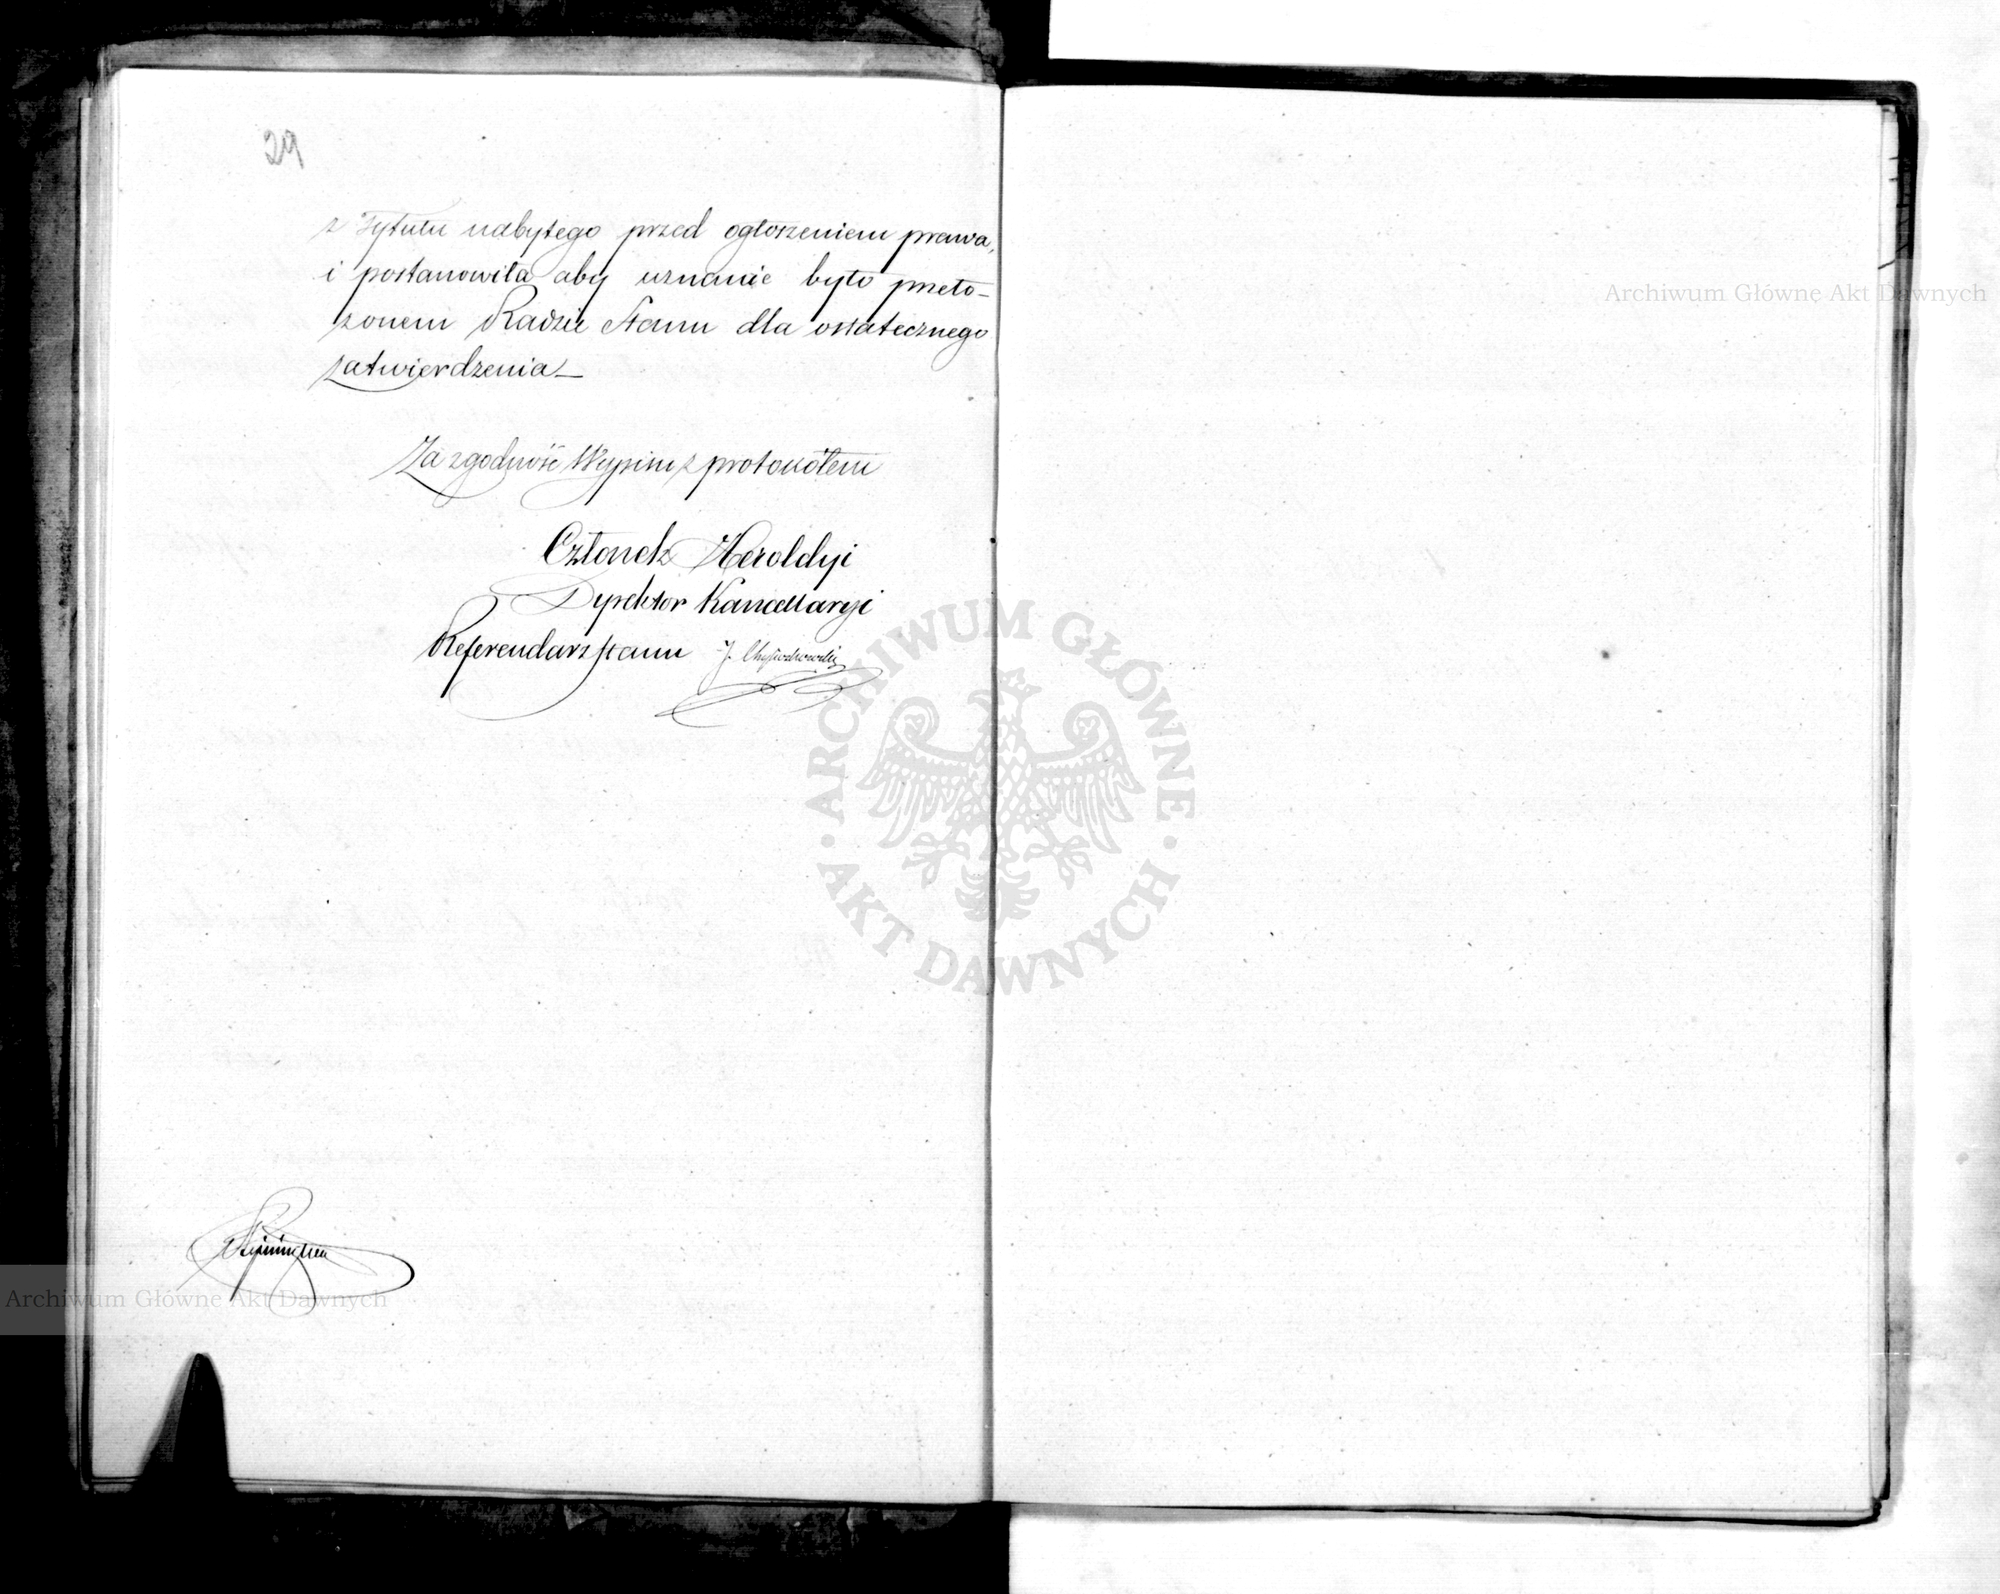 29
z Tytułu nabytego przed ogłoszeniem prawa,
i postanowiła aby uznanie było przeło-
żonem Radzie Stanu dla ostatecznego
zatwierdzenia_
Za zgodność Wypisu z protokółem
Członek Heroldyi
Dyrektor Kancellaryi
Referendarz Stanu J.
Archiwum Główne Akt Dawnych
Archiwum Główne Akt Dawnych
ARCHIWUM GŁÓWNE AKT DAWNYCH